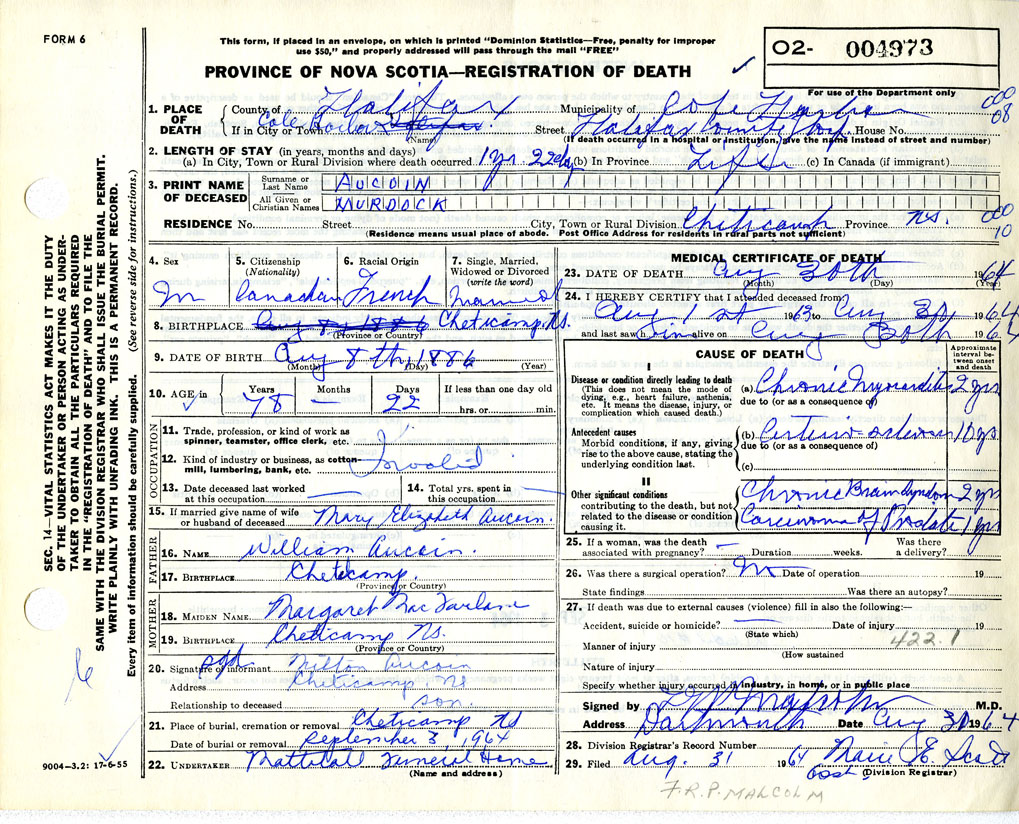 FORM 6
This form, if placed in an envelope, on which is printed "Dominion Statistics—Free, penalty for improper
use $50," and properly addressed will pass through the mail "FREE"
PROVINCE OF NOVA SCOTIA—REGISTRATION OF DEATH
02- 004973
For use of the Department only
1. PLACE OF DEATH
County of Halifax Municipality of Cole Harbor
000
08
If in City or Town Cole Harbor Halifax. Street Halifax County Hosp. House No.
(Name) (If death occurred in a hospital or institution, give the name instead of street and number)
2. LENGTH OF STAY (in years, months and days)
(a) In City, Town or Rural Division where death occurred 1 yr. 22 days (b) In Province Life (c) In Canada (if immigrant)
3. PRINT NAME OF DECEASED
Surname or Last Name AUCOIN
All Given or Christian Names MURDOCK
RESIDENCE No. Street City, Town or Rural Division Cheticamp Province NS.
000
10
(Residence means usual place of abode. Post Office Address for residents in rural parts not sufficient)
4. Sex M
5. Citizenship (Nationality) Canadian
6. Racial Origin French
7. Single, Married, Widowed or Divorced (write the word) Married
8. BIRTHPLACE Aug 8 1886 Cheticamp, NS.
(Province or Country)
9. DATE OF BIRTH Aug 8th, 1886
(Month) (Day) (Year)
10. AGE in Years 78 Months — Days 22 If less than one day old hrs. or min.
OCCUPATION
11. Trade, profession, or kind of work as spinner, teamster, office clerk, etc.
12. Kind of industry or business, as cotton-mill, lumbering, bank, etc. Invalid
13. Date deceased last worked at this occupation —
14. Total yrs. spent in this occupation —
15. If married give name of wife or husband of deceased Mary Elizabeth Aucoin.
FATHER
16. NAME William Aucoin.
17. BIRTHPLACE Cheticamp.
(Province or Country)
MOTHER
18. MAIDEN NAME Margaret MacFarlane
19. BIRTHPLACE Cheticamp NS.
(Province or Country)
20. Signature of informant sgd Milton Aucoin
Address Cheticamp, NS
Relationship to deceased son.
21. Place of burial, cremation or removal Cheticamp NS
Date of burial or removal September 3, 1964
22. UNDERTAKER Mattatall Funeral Home
(Name and address)
MEDICAL CERTIFICATE OF DEATH
23. DATE OF DEATH Aug 30th 1964
(Month) (Day) (Year)
24. I HEREBY CERTIFY that I attended deceased from
Aug. 1st 1963 to Aug 30 1964
and last saw him alive on Aug 30th 1964
CAUSE OF DEATH
Approximate interval between onset and death
I
Disease or condition directly leading to death
(This does not mean the mode of dying, e.g., heart failure, asthenia, etc. It means the disease, injury, or complication which caused death.)
(a) Chronic Myocarditis 2 yrs
due to (or as a consequence of)
Antecedent causes
Morbid conditions, if any, giving rise to the above cause, stating the underlying condition last.
(b) 10 yrs
due to (or as a consequence of)
(c)
II
Other significant conditions
contributing to the death, but not related to the disease or condition causing it.
Chronic Brain Syndrom 2 yrs
Carcinoma of Prostate 1 yrs
25. If a woman, was the death associated with pregnancy? — Duration weeks. Was there a delivery?
26. Was there a surgical operation? No Date of operation 19
State findings Was there an autopsy?
27. If death was due to external causes (violence) fill in also the following:—
Accident, suicide or homicide? — Date of injury 19
(State which)
Manner of injury 422.1
(How sustained
Nature of injury
Specify whether injury occurred in industry, in home, or in public place
Signed by M.D.
Address Dartmouth Date Aug 30 1964
28. Division Registrar's Record Number
29. Filed Aug. 31 1964 Marie E. Scott
(Division Registrar)
F.R.P. MALCOLM
SEC. 14—VITAL STATISTICS ACT MAKES IT THE DUTY
OF THE UNDERTAKER OR PERSON ACTING AS UNDER-
TAKER TO OBTAIN ALL THE PARTICULARS REQUIRED
IN THE "REGISTRATION OF DEATH" AND TO FILE THE
SAME WITH THE DIVISION REGISTRAR WHO SHALL ISSUE THE BURIAL PERMIT.
WRITE PLAINLY WITH UNFADING INK. THIS IS A PERMANENT RECORD.
Every item of information should be carefully supplied. (See reverse side for instructions.)
6
9004—3.2: 17-6-55